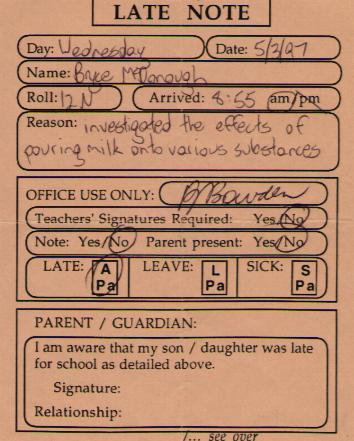 LATE NOTE
Day: Wednesday Date: 5/3/97
Name: Bryce McDonough
Roll: 12N Arrived: 8:55 am/pm
Reason: investigated the effects of
pouring milk onto various substances
OFFICE USE ONLY: B Bowden
Teachers' Signatures Required: Yes/No
Note: Yes/No Parent present: Yes/No
LATE: A Pa LEAVE: L Pa SICK: S Pa
PARENT / GUARDIAN:
I am aware that my son / daughter was late
for school as detailed above.
Signature:
Relationship:
/... see over